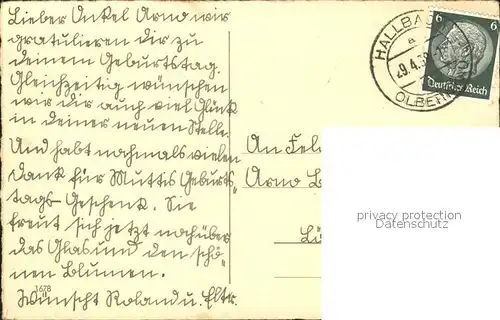 Lieber Onkel Arno wir
gratulieren dir zu
deinem Geburtstag.
Gleichzeitig wünschen
wir dir auch viel Glück
in deiner neuen Stelle.
Und habt nochmals vielen
Dank für Muttis Geburts-
tags-Geschenk. Sie
freut sich jetzt noch über
das Glas und den schö-
nen Blumen.
Wünscht Roland u. Eltr.
1678
HALLBA
a
29.4.3
OLBERN
6 6
Deutsches Reich
An Fel
Arno
privacy protection
Datenschutz